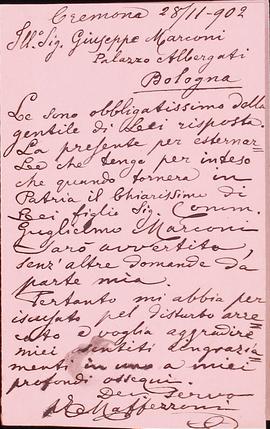 Cremona 28/11-902
Ill.º Sig. Giuseppe Marconi
Palazzo Albergati
Bologna
Le sono obbligatissimo della
gentile di Lei risposta.
La presente per esternar=
Lee che tengo per inteso
che quando tornera in
Patria il Chiarissimo di
Lei figlio Sig. Comm.
Guglielmo Marconi
sarò avvertito,
senz'altre domande da
parte mia.
Pertanto mi abbia per
iscusato pel disturbo arre=
cato e voglia aggradire
miei sentiti ringrazia=
menti in uno a miei
profondi ossequi.
Dev Servo